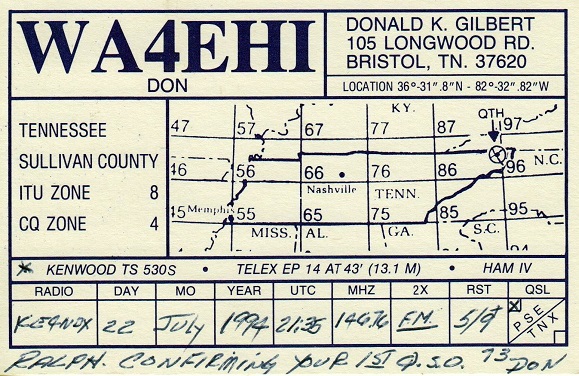 WA4EHI
DON
DONALD K. GILBERT
105 LONGWOOD RD.
BRISTOL, TN. 37620
LOCATION 36º-31".8"N - 82º-32".82"W
TENNESSEE
SULLIVAN COUNTY
ITU ZONE 8
CQ ZONE 4
KY.
QTH
47 57 67 77 87 97
46 56 66 76 86 96 N.C.
Nashville TENN.
45 Memphis 55 65 75 85 95
MISS. AL. GA. S.C.
94
KENWOOD TS 530S • TELEX EP 14 AT 43' (13.1 M) • HAM IV
RADIO DAY MO YEAR UTC MHZ 2X RST QSL
KE4NDX 22 July 1994 21:35 146.76 F.M. 5/9 PSE TNX
RALPH. CONFIRMING YOUR 1ST Q.S.O. 73 DON